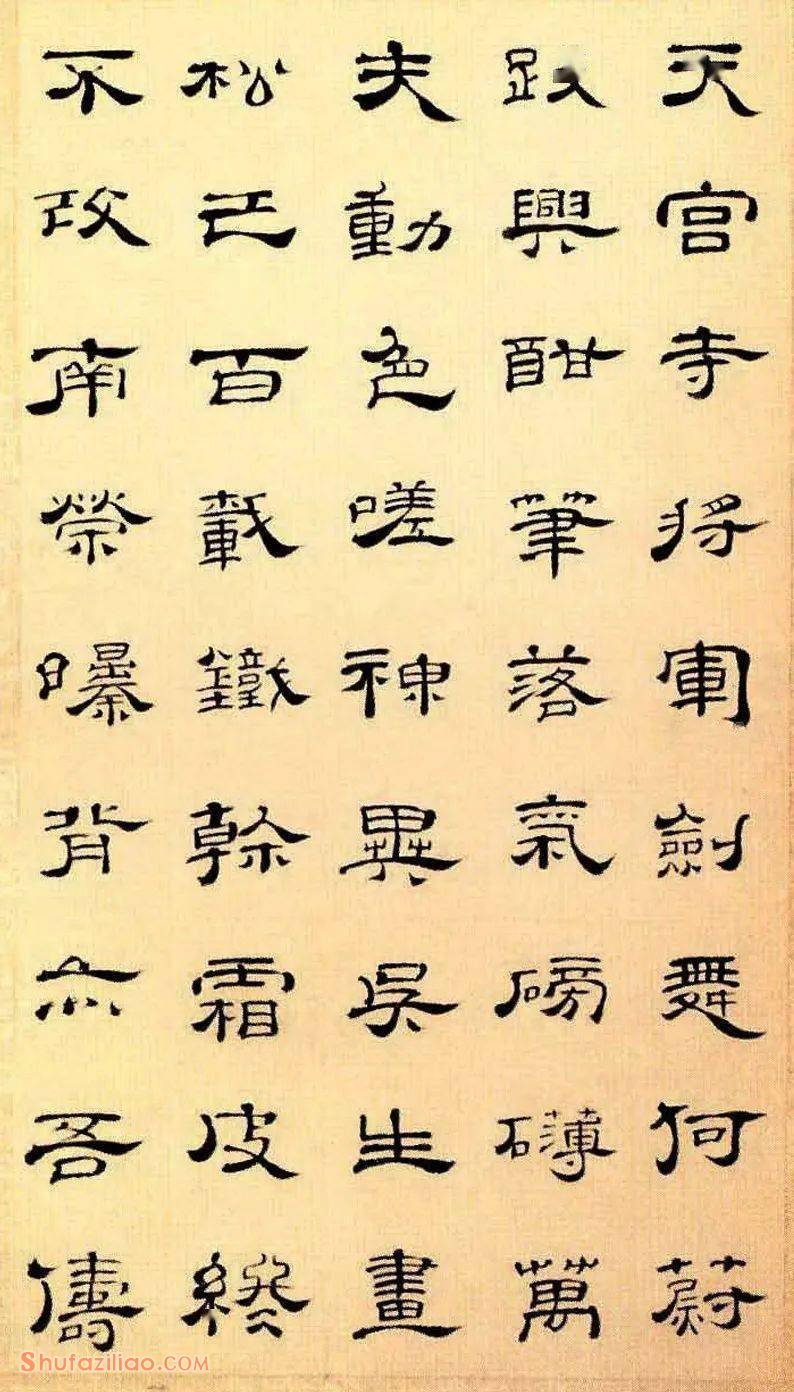 天宫寺将軍劍舞何蔚
跂興酣筆落氣磅礴萬
夫動色嗟神異吳生畫
松已百載鐵幹霜皮終
不改南榮曝背亦吾儔
Shufaziliao.COM